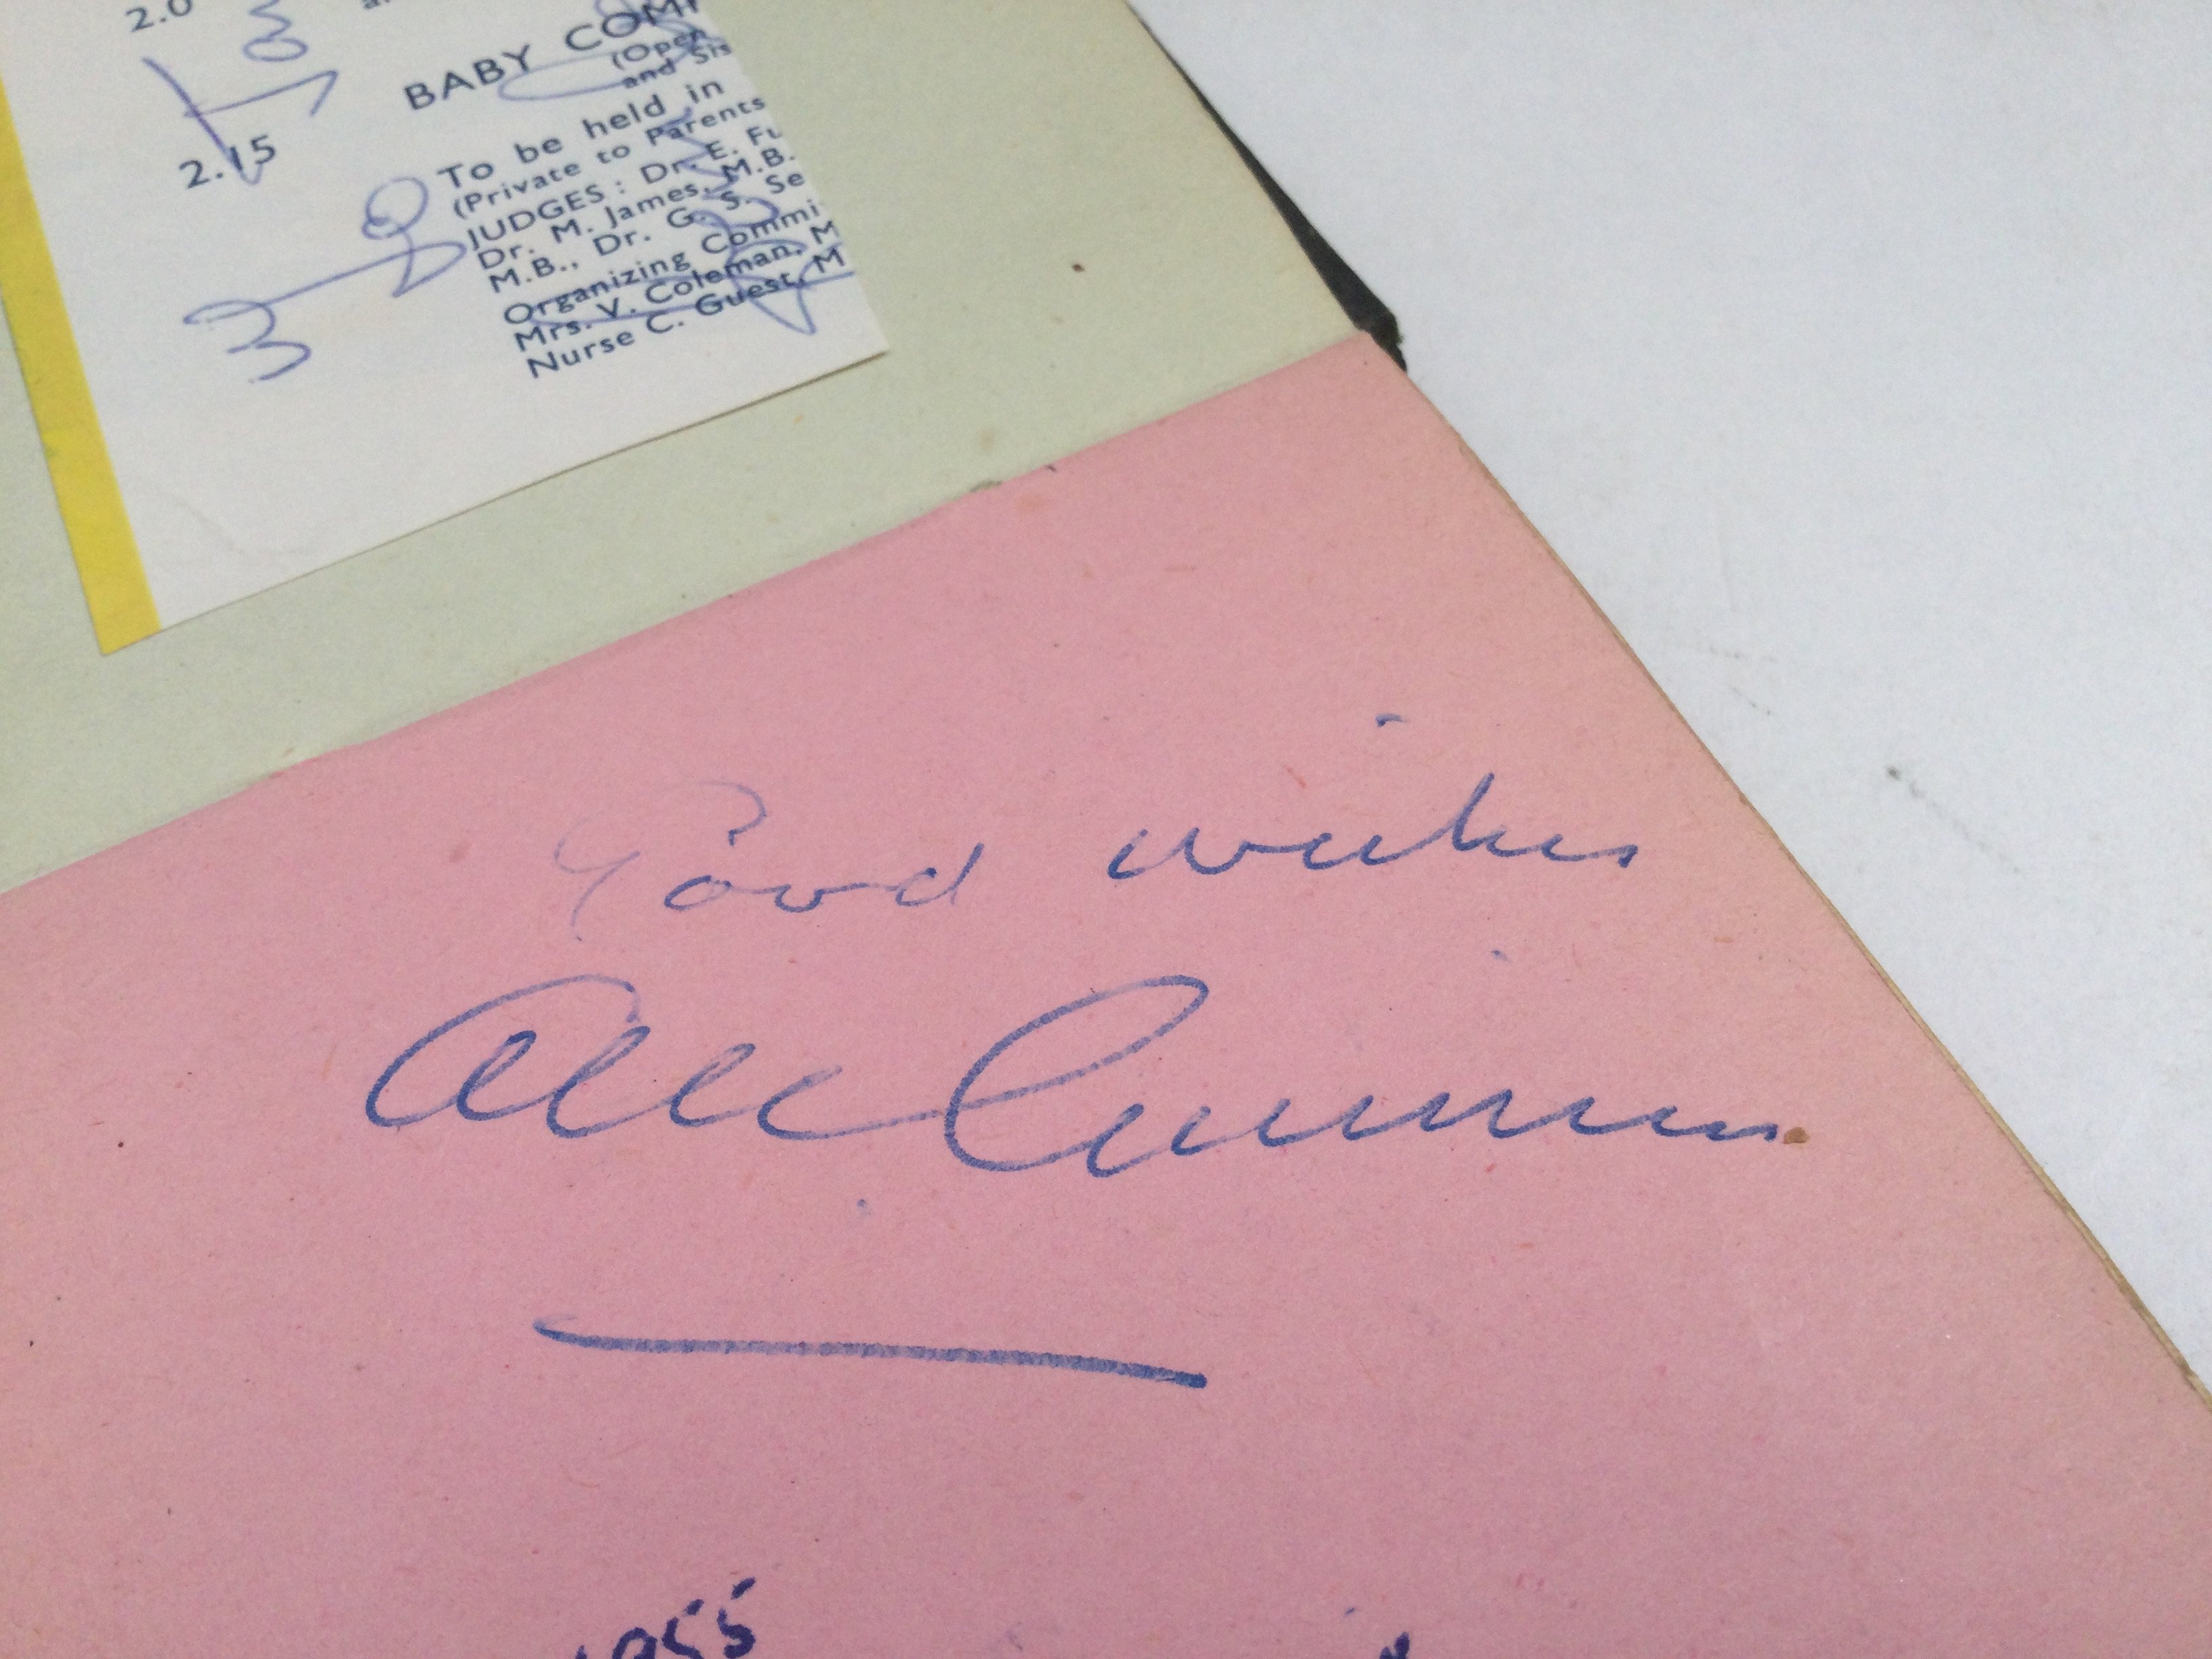 2.0
BABY COM
(Open
and Sis
2.15
To be held in
(Private to Parents
JUDGES : Dr. E. Fu
Dr. M. James, M.B.
M.B., Dr. G. S. Se
Organizing Commi
Mrs. V. Coleman, M
Nurse C. Guest, M
Good wishes
Alec Guinness
1955